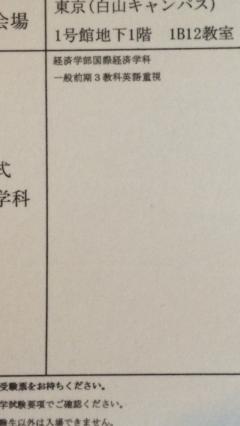 会場
東京(白山キャンパス)
1号館地下1階 1B12教室
経済学部国際経済学科
一般前期3教科英語重視
式
学科
受験票をお持ちください。
学試験要項でご確認ください。
験生以外は入場できません。